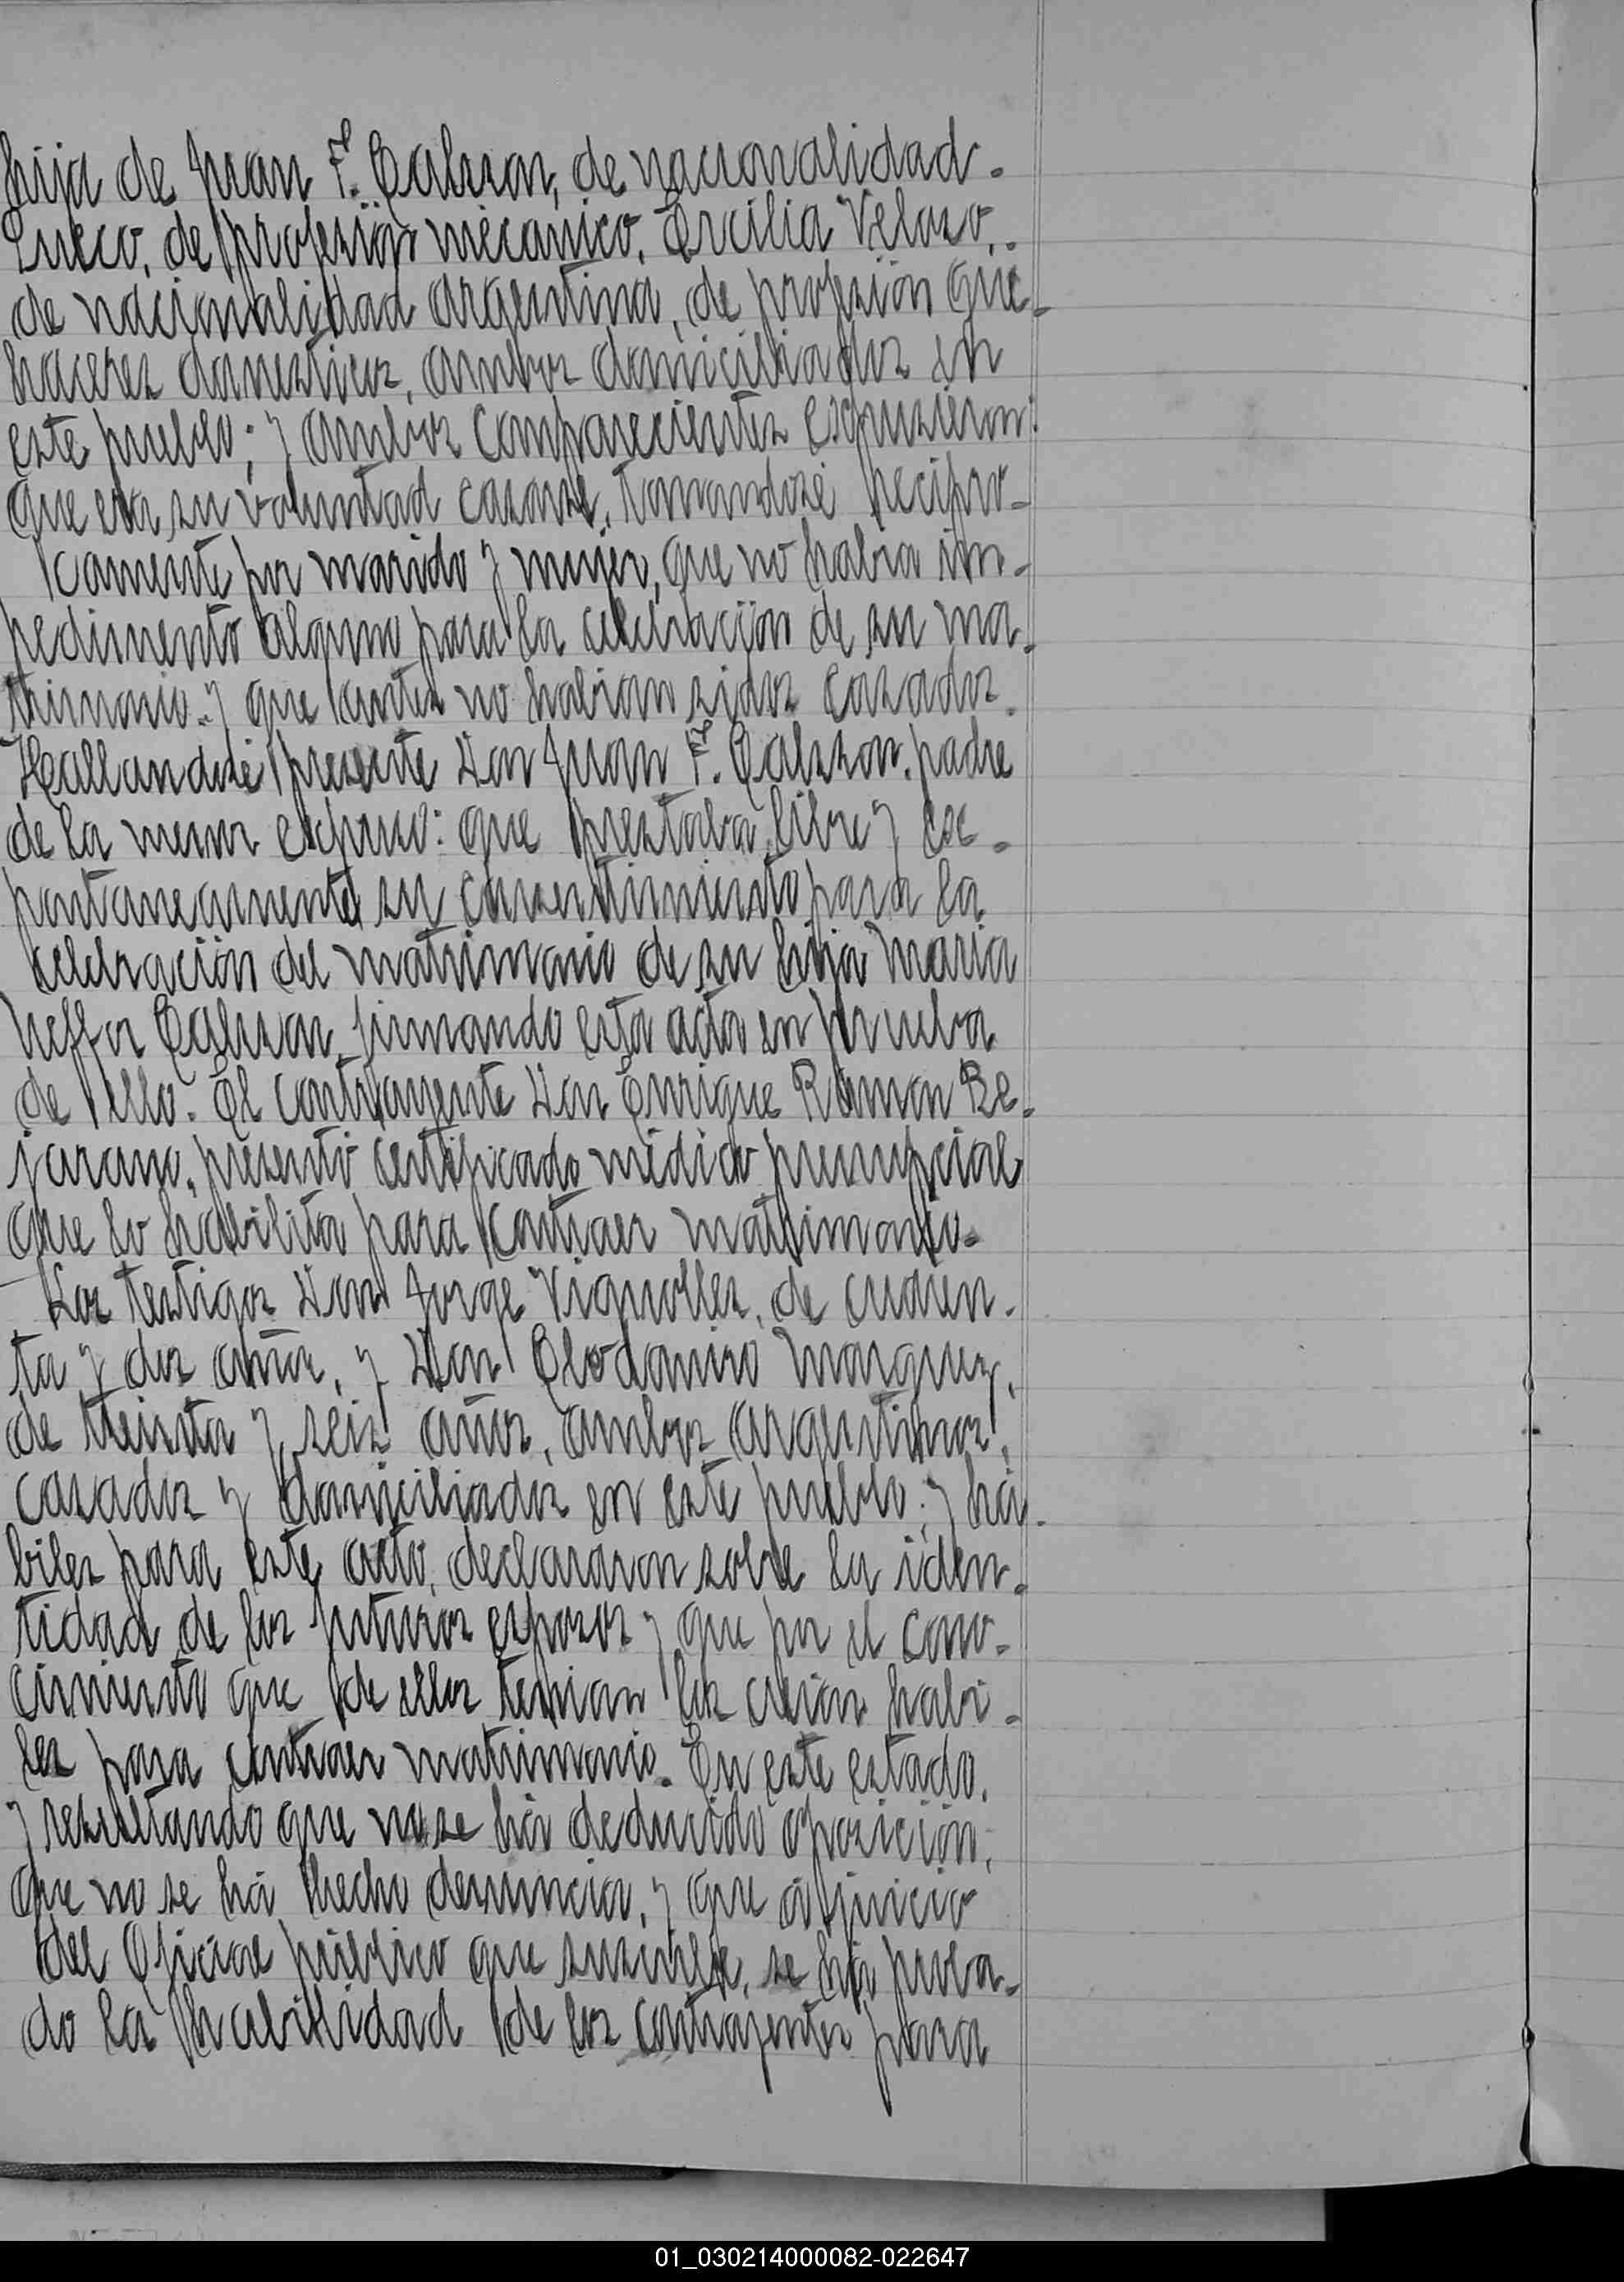 hija de Juan F. Calszon, de nacionalidad.
Sueco, de profesión mecánico, Ercilia Velazo,.
de nacionalidad argentina, de profesión que-
haceres domesticos, ambos domiciliados en
este pueblo; y ambos comparecientes expusieron:
que era su voluntad casarse, tomandosé recipro-
camente por marido y mujer, que no habia im-
pedimento alguno para la celebración de su ma-
trimonio.y que antes no habian sidos casados.
Hallandosé presente Don Juan F. Calszon, padre
de la menor expuso: que prestaba libre y es-
pontaneamente su consentimiento para la
celebración del matrimonio de su hija Maria
Calszon, firmando esta acta en prueba
de ello. El contrayente Don Enrique Ramon Be-
jarano, presentó certificado médico prenupcial
que lo habilita para contraer matrimonio.
Los testigos Don Jorge Vignolles, de cuaren-
ta y dos años, y Don Clodomiro Marquez,
de treinta y seis años, ambos argentinos,
casados y domiciliados en este pueblo; y há-
biles para este acto, declararon sobre la iden-
tidad de los futuros esposos y que por el cono-
cimiento que de ellos tenian los creian habi-
les para contraer matrimonio. En este estado,
y resultando que no se há deducido oposición,
que no se há hecho denuncia, y que á juicio
del Oficial público que suscribe, se há proba-
do la habilidad de los contrayentes para
01_030214000082-022647